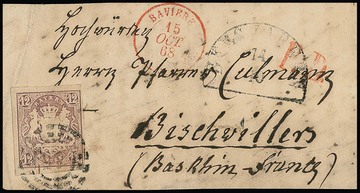 BAVIERE
15
OCT.
68
Hochwürden
Herrn Pfarrer Culmann
Bischwiller
(Basrhin-France)
12 12
12
14
P.D.